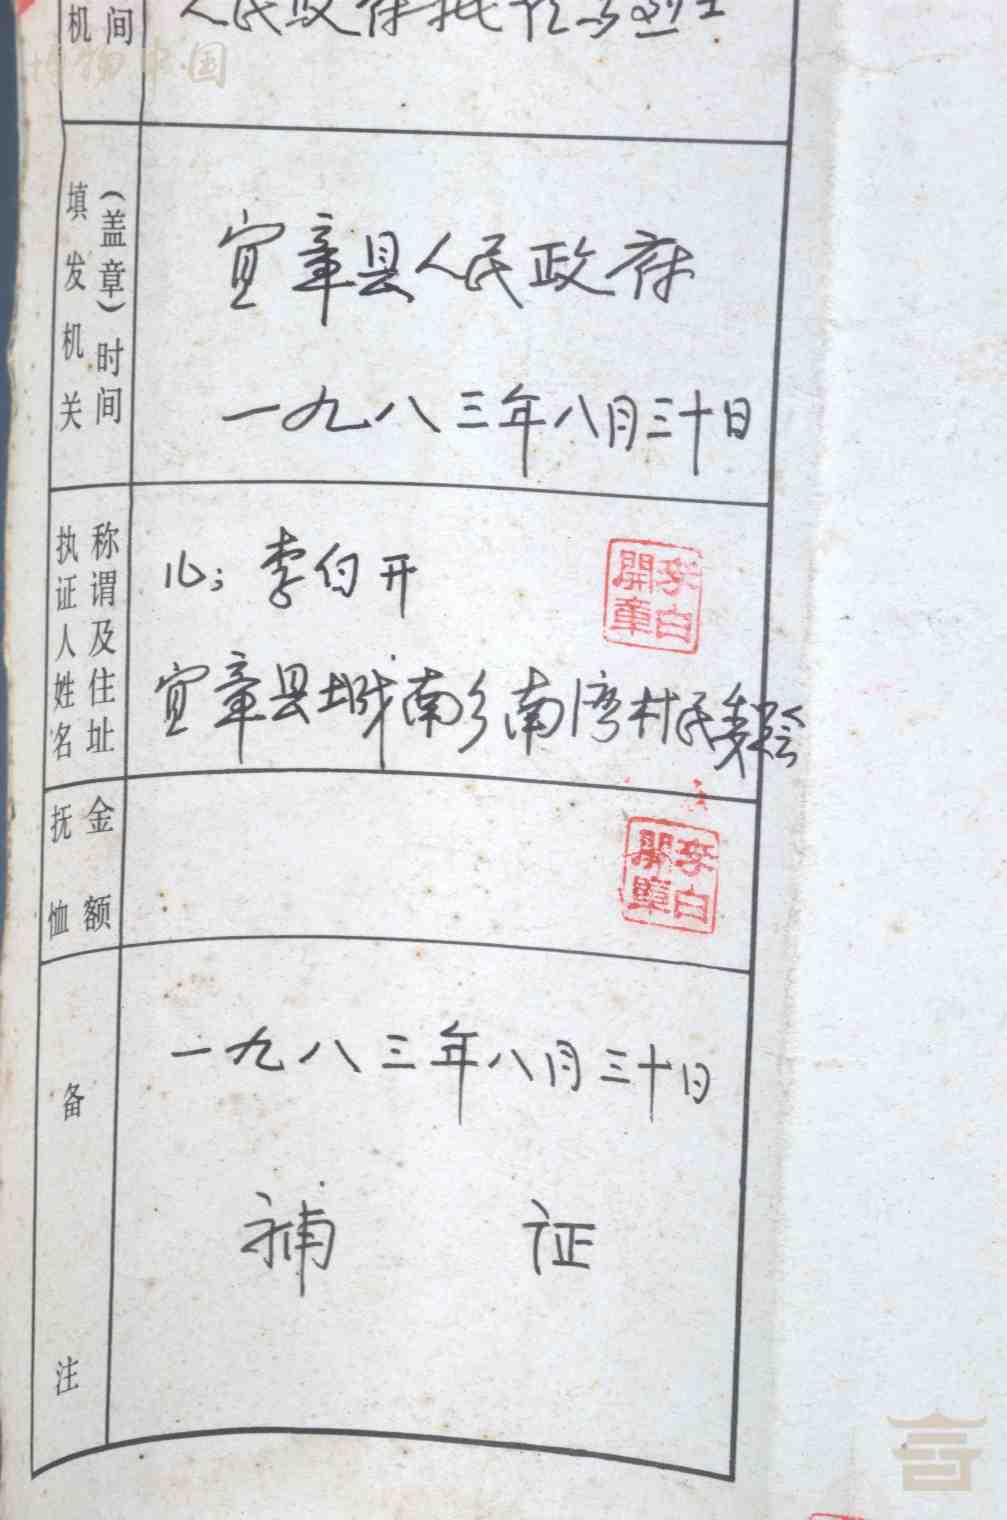 机 间
人民政府批准为烈士
博物中国
填发机关
(盖章)时间
宜章县人民政府
一九八三年八月三十日
执证人姓名
称谓及住址
儿；李白开
李白開章
宜章县城南乡南湾村民委会
抚恤
金额
李白開章
备注
一九八三年八月三十日
补 证